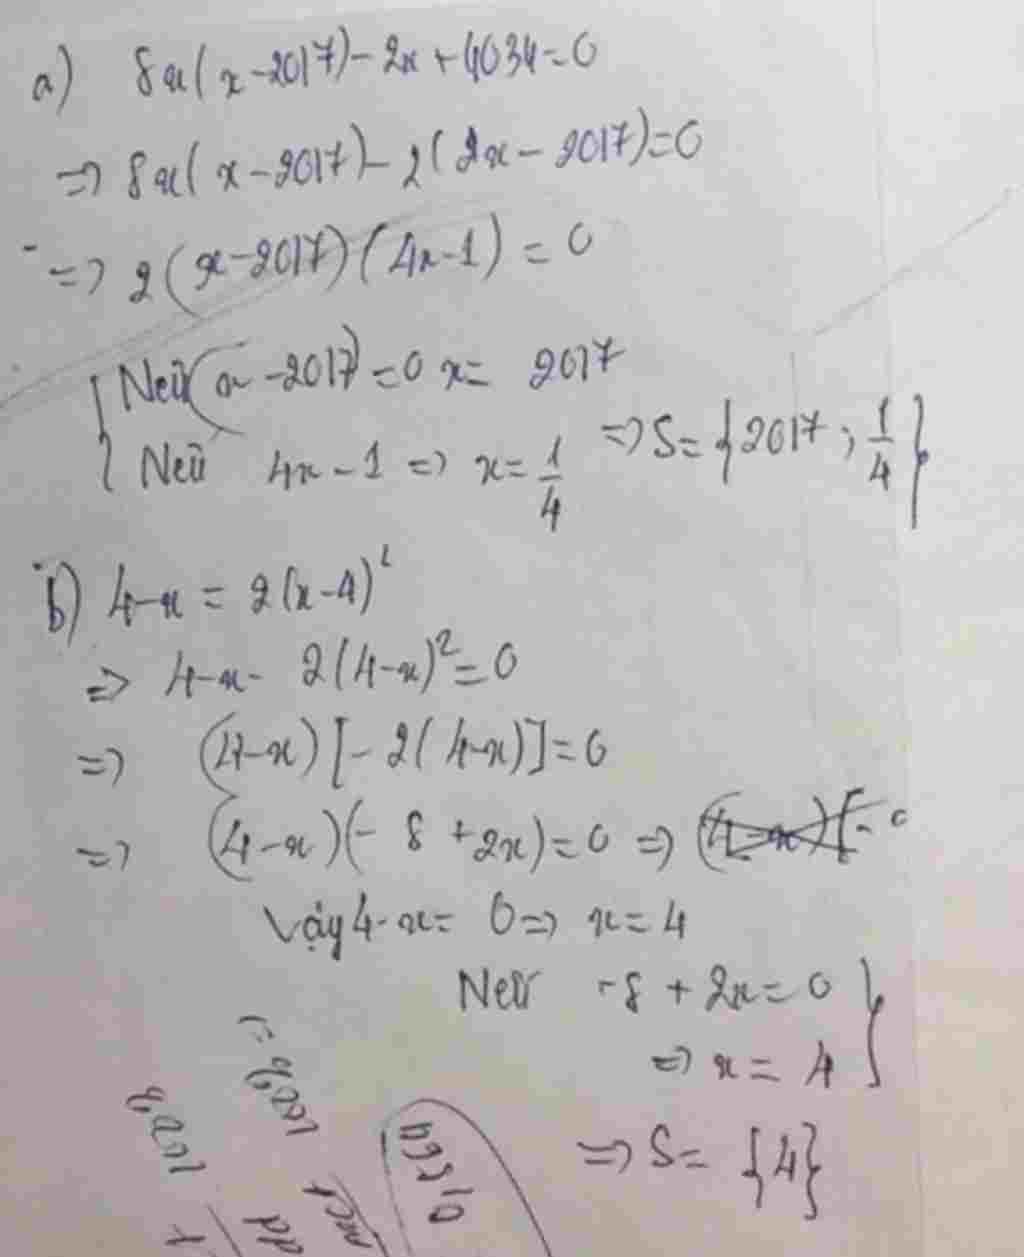 a) 8x(x-2017)-2x+4034=0
=> 8x(x-2017)-2(2x-2017)=0
=> 2(x-2017)(4x-1)=0
Nếu (x-2017)=0 x= 2017
Nếu 4x-1 => x=1/4 => S={2017; 1/4}
b) 4-x = 2(x-4)²
=> 4-x- 2(4-x)²=0
=> (4-x)[-2(4-x)]=0
=> (4-x)(-8+2x)=0 =>
Vậy 4-x= 0=> x=4
Nếu -8+2x=0
=> x = 4
=> S= {4}